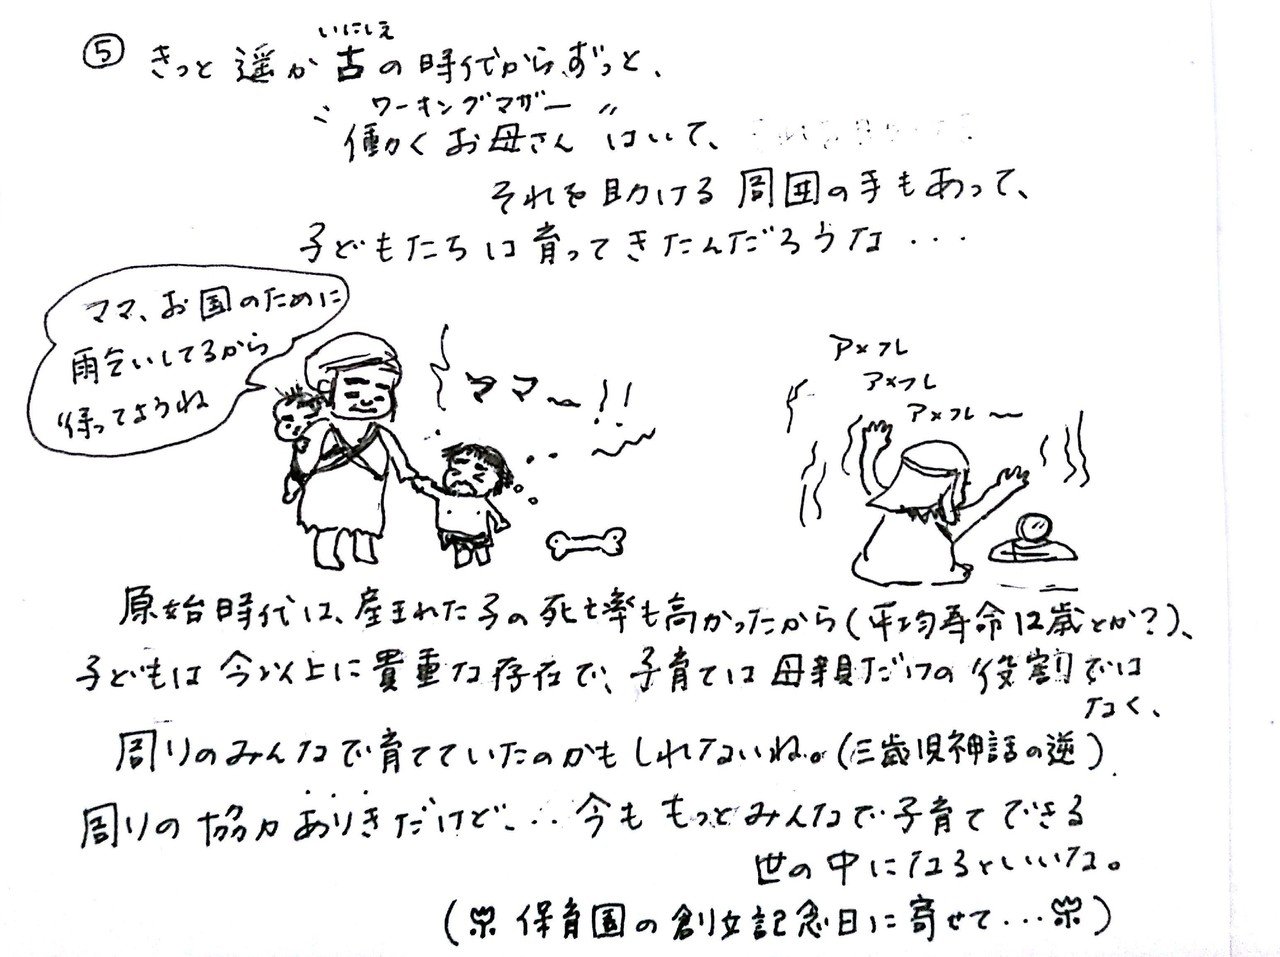 ⑤ きっと 遥か 古の時代から、ずっと、
いにしえ
ワーキングマザー
〝働くお母さん〟はいて、
それを助ける 周囲の手もあって、
子どもたちは育ってきたんだろうな...
ママ、お国のために
雨乞いしてるから
待ってようね
ママ〜!!
アメフレ
アメフレ
アメフレ〜
原始時代は、産まれた子の死亡率も高かったから(平均寿命12歳とか?)、
子どもは今以上に貴重な存在で、子育ては母親だけの役割では
なく、
周りのみんなで育てていたのかもしれないね。(三歳児神話の逆)
周りの協力ありきだけど...今ももっとみんなで子育てできる
世の中になるといいな。
(保育園の創立記念日に寄せて...)